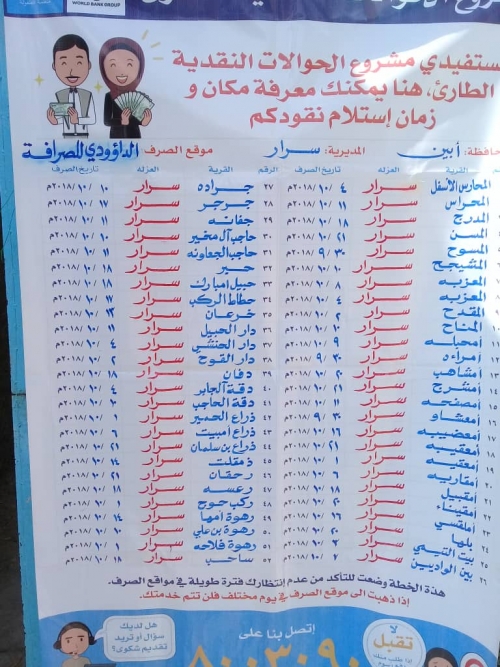 WORLD BANK GROUP
ستفيدي مشروع الحوالات النقدية
الطارئ، هنا يمكنك معرفة مكان و
زمان إستلام نقودكم
حافظة: أبين المديرية: سرار موقع الصرف: الداؤودي للصرافة
القرية العزله تاريخ الصرف الرقم القرية العزله تاريخ الصرف
المحارس الأسفل سرار ٤ /١٠ /٢٠١٨م ٢٧ جراده سرار ١٠ /١٠ /٢٠١٨م
المحراس سرار ١١ /١٠ /٢٠١٨م ٢٨ جرجر سرار ١٧ /١٠ /٢٠١٨م
المدرج سرار ١٨ /١٠ /٢٠١٨م ٢٩ جفانه سرار ١١ /١٠ /٢٠١٨م
المسن سرار ٢١ /١٠ /٢٠١٨م ٣٠ حاجب آل مخير سرار ١٠ /١٠ /٢٠١٨م
المسوح سرار ٣٠ /٩ /٢٠١٨م ٣١ حاجب الجعاونه سرار ١١ /١٠ /٢٠١٨م
المشيجح سرار ١٠ /١٠ /٢٠١٨م ٣٢ سرار ١٨ /١٠ /٢٠١٨م
المعزبه سرار ٨ /١٠ /٢٠١٨م ٣٣ حبيل امبارك سرار ١٨ /١٠ /٢٠١٨م
المعزبه سرار ٤ /١٠ /٢٠١٨م ٣٤ حطاط الركب سرار ١٧ /١٠ /٢٠١٨م
المقدح سرار ٢ /١٠ /٢٠١٨م ٣٥ خرعان سرار /١٠ /٢٠١٨م
المناخ سرار ١٠ /١٠ /٢٠١٨م ٣٦ دار الحبيل سرار ١١ /١٠ /٢٠١٨م
امحبله سرار ٩ /١٠ /٢٠١٨م ٣٧ دار الحنشي سرار ٤ /١٠ /٢٠١٨م
امراده سرار ٣٠ /٩ /٢٠١٨م ٣٨ دار القوح سرار ٢ /١٠ /٢٠١٨م
امشاهب سرار ١٠ /١٠ /٢٠١٨م ٣٩ دفان سرار ١٨ /١٠ /٢٠١٨م
امشرح سرار ٢١ /١٠ /٢٠١٨م ٤٠ دقة الجابر سرار ٤ /١٠ /٢٠١٨م
امصنحه سرار ١١ /١٠ /٢٠١٨م ٤١ دقة الحاجب سرار ١٠ /١٠ /٢٠١٨م
امعشاو سرار ٣٠ /٩ /٢٠١٨م ٤٢ ذراع الحمير سرار ١ /١٠ /٢٠١٨م
امعضيبه سرار ١٦ /١٠ /٢٠١٨م ٤٣ ذراع امبيت سرار ٦ /١٠ /٢٠١٨م
امعقيبه سرار ٢١ /١٠ /٢٠١٨م ٤٤ ذراع بن سلمان سرار ٢١ /١٠ /٢٠١٨م
امعقيه سرار /١٠ /٢٠١٨م ٤٥ ذمقلت سرار ١٤ /١٠ /٢٠١٨م
امقاربه سرار ٦ /١٠ /٢٠١٨م ٤٦ رحقان سرار ٢١ /١٠ /٢٠١٨م
امقبيل سرار ١٨ /١٠ /٢٠١٨م ٤٧ رعسه سرار ١٨ /١٠ /٢٠١٨م
امقيناء سرار /١٠ /٢٠١٨م ٤٨ ركب حوج سرار ١ /١٠ /٢٠١٨م
املقسي سرار ١٦ /١٠ /٢٠١٨م ٤٩ رهوة امها سرار ١٤ /١٠ /٢٠١٨م
بلها سرار /١٠ /٢٠١٨م ٥٠ رهوة بن علي سرار ١٠ /١٠ /٢٠١٨م
بيت التيمي سرار ٣ /١٠ /٢٠١٨م ٥١ رهوة فلاحه سرار ١ /١٠ /٢٠١٨م
٢٦ بين الواديين سرار ٧ /١٠ /٢٠١٨م ٥٢ ساحب سرار ١٨ /١٠ /٢٠١٨م
هذه الخطة وضعت للتأكد من عدم إنتظارك فترة طويلة في مواقع الصرف.
إذا ذهبت الى موقع الصرف في يوم مختلف فلن تتم خدمتك.
إتصل بنا على
٨٠٠٣٠٩٠
هل لديك
سؤال أو تريد
تقديم شكوى؟
لا
تقبل
إذا طلب منك